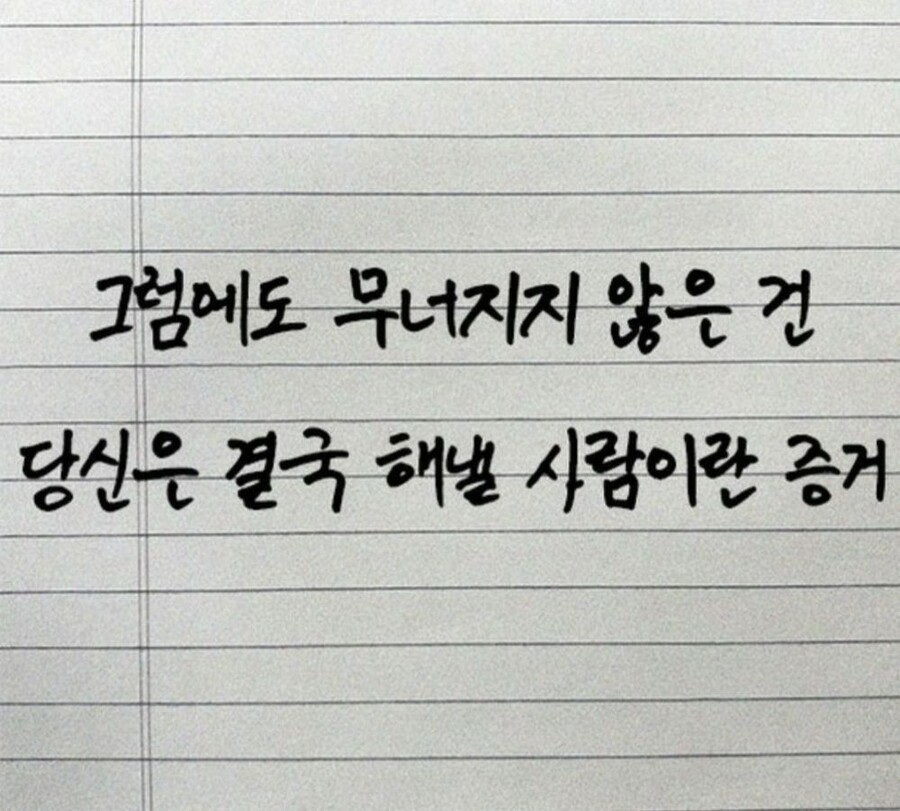 그럼에도 무너지지 않은 건
당신은 결국 해낼 사람이란 증거